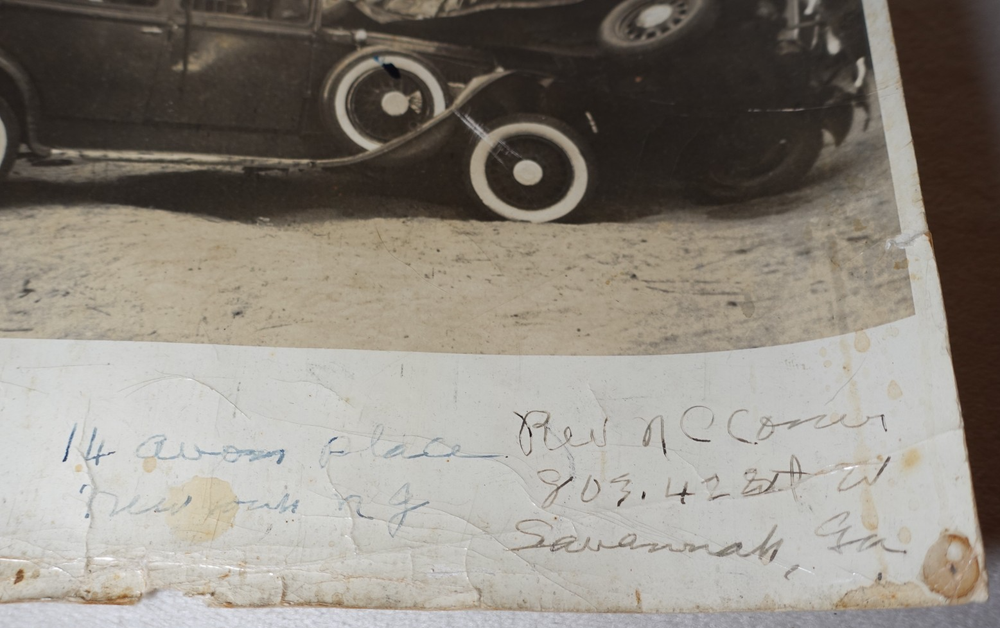 14 avon place
newark n J
Rev N C
803. 42 St W
Savannah, Ga